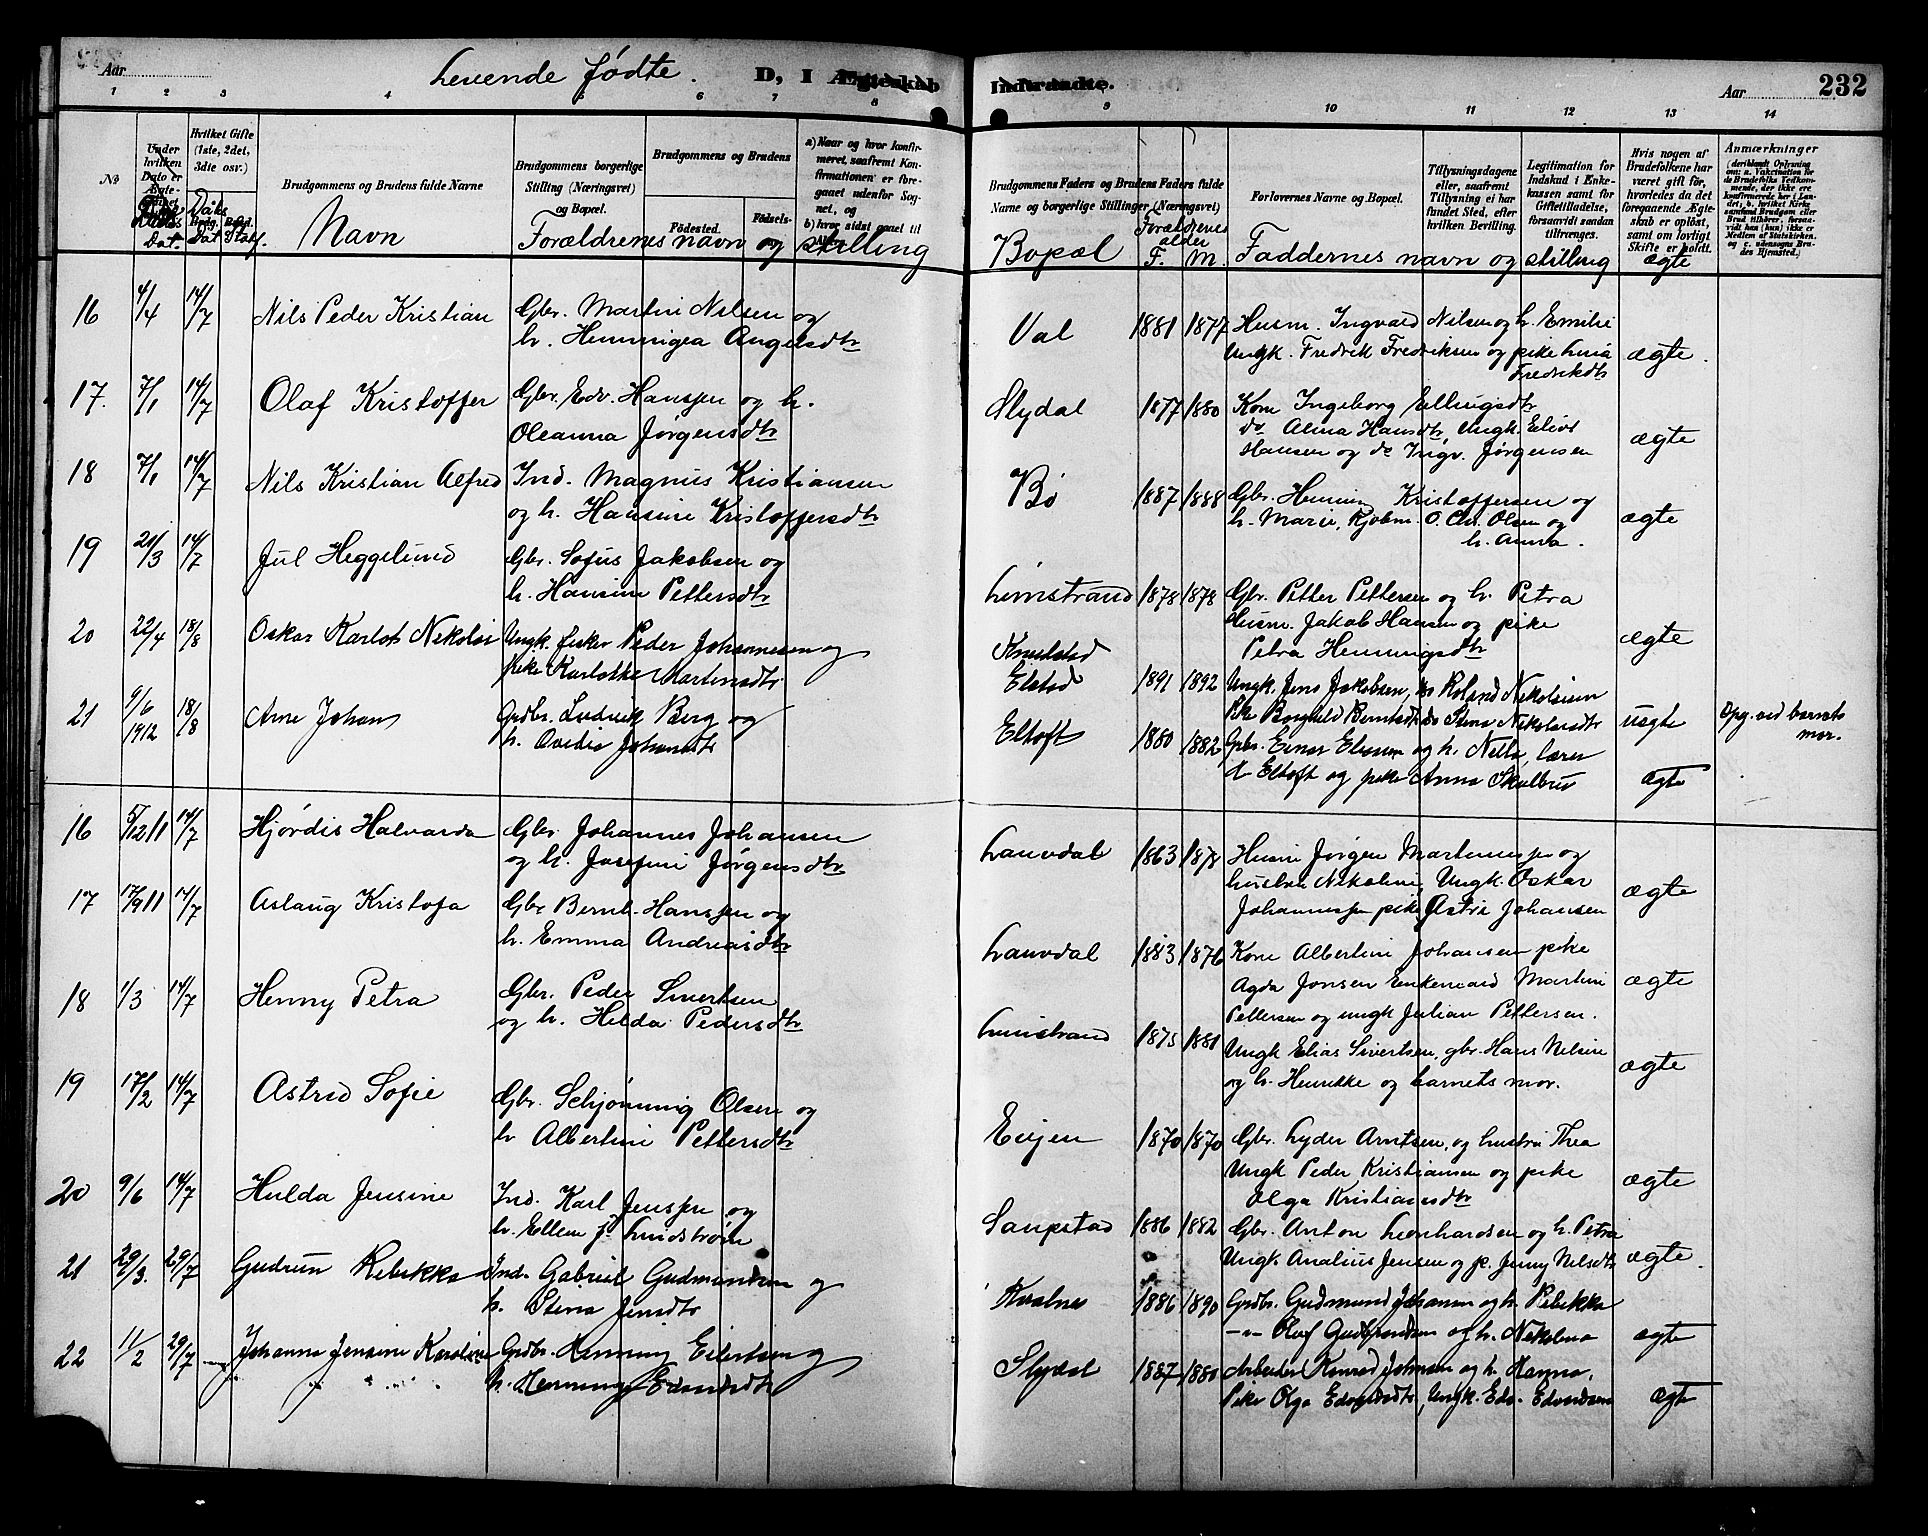 Aar
Levende fødte.
D, I Ægteskab
Indtraadte.
Aar
232
1 2 3 4 5 6 7 8
9 10 11 12 13 14
No
Under hvilken Dato er Ægte-
Hvilket Gifte (1ste, 2det, 3die osv.)
Brudgommens og Brudens fulde Navne
Brudgommens borgerlige Stilling (Næringsvei) og Bopæl.
Brudgommens og Brudens
Fødested.
Fødsels-
a) Naar og hvor konfirmeret, saafremt Konfirmationen er foregaaet udenfor Sognet, og
b) hvor sidst gaaet til
Brudgommens Faders og Brudens Faders fulde Navne og borgerlige Stillinger (Næringsvei)
Forlovernes Navne og Bopæl.
Tillysningsdagene eller, saafremt Tillysning ei har fundet Sted, efter hvilken Bevilling.
Legitimation for Indskud i Enkekassen samt for Giftetilladelse, forsaavidt saadan tiltrænges.
Hvis nogen af Brudefolkene har været gift før, hvorledes da det foregaaende Ægteskab er opløst, samt om lovligt Skifte er holdt.
Anmærkninger
Dat.
Daabs Dat
Navn
Forældrenes navn og stilling
Bopæl
Forældrenes alder
F. M.
Faddernes navn og stilling
ægte
16 4/4 14/7 Nils Peder Kristian Gbr. Martin Nilsen og
h. Henningea Angelsdtr
Val 1881 1877 Husm. Ingvald Nilsen og h. Emilie
Ungk. Fredrik Fredriksen og pike Lina
Fredrikdtr
ægte.
17. 7/1 14/7 Olaf Kristoffer Gbr. Edv. Hanssen og h.
Oleanna Jørgensdtr
Slydal 1877 1880 Kone Ingeborg Ellingsdtr
do Alma Hansdtr Ungk. Eiliot
Hansen og do Ingv. Jørgensen
ægte
18 7/1 14/7 Nils Kristian Alfred Ind. Magnus Kristiansen
og h. Hansine Kristoffersdtr
Bø 1887 1888 Gbr. Henning Kristoffersen og
h. Marie, Kjøbm. O. Chr. Olsen og
h. Anna.
ægte
19 21/3 14/7 Jul Heggelund Gbr. Sofus Jakobsen og
h. Hansine Pettersdtr
Limstrand 1878 1878 Gbr. Petter Pettersen og h. Petra
Husm. Jakob Hansen og pike
Petra Henningsdtr
ægte
20 22/4 18/8 Oskar Karlot Nikolai Ungk. fisker Peder Johannesen og
pike Karlotte Martinsdtr
Knutstad
Elstad 1891 1892 Ungk. Jens Jakobsen, do Roland Nikolaisen
Pike Borghild Berntsdtr do Stina Nikolaisdtr
uegte
Opg. ved barnets
mor.
21 9/6
1912 18/8 Arne Johan Grdbr. Ludvik Berg og
h. Ovidia Johansdtr
Eltoft 1880 1882 Gbr. Einar Eliassen og h. Nella, lærer
A Eltoft og pike Anna Skulbru
Ægte
16 5/12 11 14/7 Hjördis Halvarda Gbr. Johannes Johansen
og h. Josefine Jørgensdtr
Lauvdal 1863 1878 Husm Jørgen Martinussen og
hustru Nikoline, Ungk. Oskar
Johannessen pike Astri Johansen
ægte
17 17/9 11 14/7 Aslaug Kristofa Gbr Bernt Hanssen og
h. Emma Andreasdtr
Lauvdal 1883 1876 Kone Albertine Johansen pike
Agda Jonsen Enkemand Martin
Pettersen og ungk Julian Pettersen.
ægte
18 1/3 14/7 Henny Petra Gbr. Peder Sivertsen
og h. Hilda Pedersdtr
Limstrand 1875 1881 Ungk Elias Sivertsen, gbr. Hans Nilsen
og h. Henrikke og barnets mor.
ægte
19 17/2 14/7 Astrid Sofie Gbr. Schjønning Olsen og
h Albertine Pettersdtr
Eujen 1870 1870 Gbr. Lyder Arntsen, og hustru Thea
Ungk Peder Kristiansen og pike
Olga Kristiansdtr
ægte
20 9/6 14/7 Hulda Jensine Ind. Karl Jenssen og
h. Ellen f. Lindstrøm
Saupstad 1886 1882 Gbr. Anton Leonhardsen og h. Petra
Ungk. Analius Jensen og p. Jenny Nilsdtr
ægte.
21 29/3. 29/7 Gudrun Rebekka Ind. Gabriel Gudmundsen og
h. Stina Jensdtr
Kvalnes 1886 1890 Grdbr. Gudmund Johansen og h. Rebekka
-"- Olaf Gudbrandsen og h. Nikolina
ægte
22 11/2 29/7 Johanna Jensine Karoline Grdbr. Henning Eilertsen og
h. Henninge Edvardsdtr
Slydal 1887 1880 Arbeider Konrad Johnsen og h. Hanna,
Pike Olga Edvardsdtr, Ungk. Edv. Edvardsen
ægte